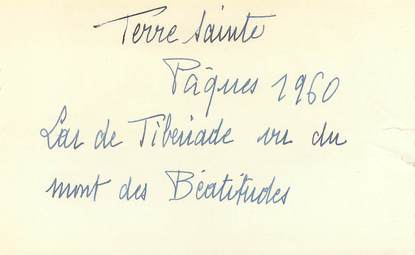 Terre Sainte
Pâques 1960
Lac de Tibériade vu du
mont des Béatitudes